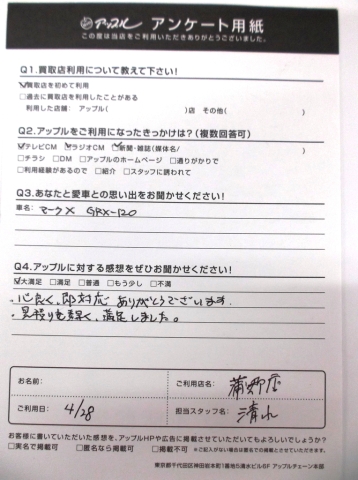 アップル アンケート用紙
この度は当店をご利用いただきありがとうございました。
Q1.買取店利用について教えて下さい!
☑買取店を初めて利用
□過去に買取店を利用したことがある
利用した店舗: アップル( )店 その他( )
Q2.アップルをご利用になったきっかけは?(複数回答可)
☑テレビCM ☑ラジオCM ☑新聞・雑誌(媒体名/ )
□チラシ □DM □アップルのホームページ □通りがかりで
□利用経験があるので □紹介 □スタッフに誘われて
Q3.あなたと愛車との思い出をお聞かせください!
車名: マークX GRX-120
Q4.アップルに対する感想をぜひお聞かせください!
☑大満足 □満足 □普通 □もう少し □不満
・心良く、即対応 ありがとうございます.
・見積りも早く、満足しました。
お名前:
ご利用店名: 蒲郡店
ご利用日: 4/28
担当スタッフ名: 清水
お客様に書いていただいた感想を、アップルHPや広告に掲載させていただいてもよろしいでしょうか?
□実名で掲載可 □匿名なら掲載可 □掲載不可 ※ご記入がない場合は匿名での掲載とさせていただきます。
東京都千代田区神田岩本町1番地5清水ビル6F アップルチェーン本部